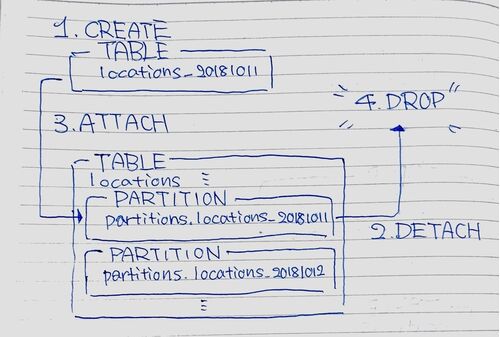 1. CREATE
TABLE
locations_20181011
3. ATTACH
"4. DROP"
TABLE
locations ⋮
PARTITION
partitions.locations_20181011
2. DETACH
PARTITION
partitions.locations_20181012
⋮